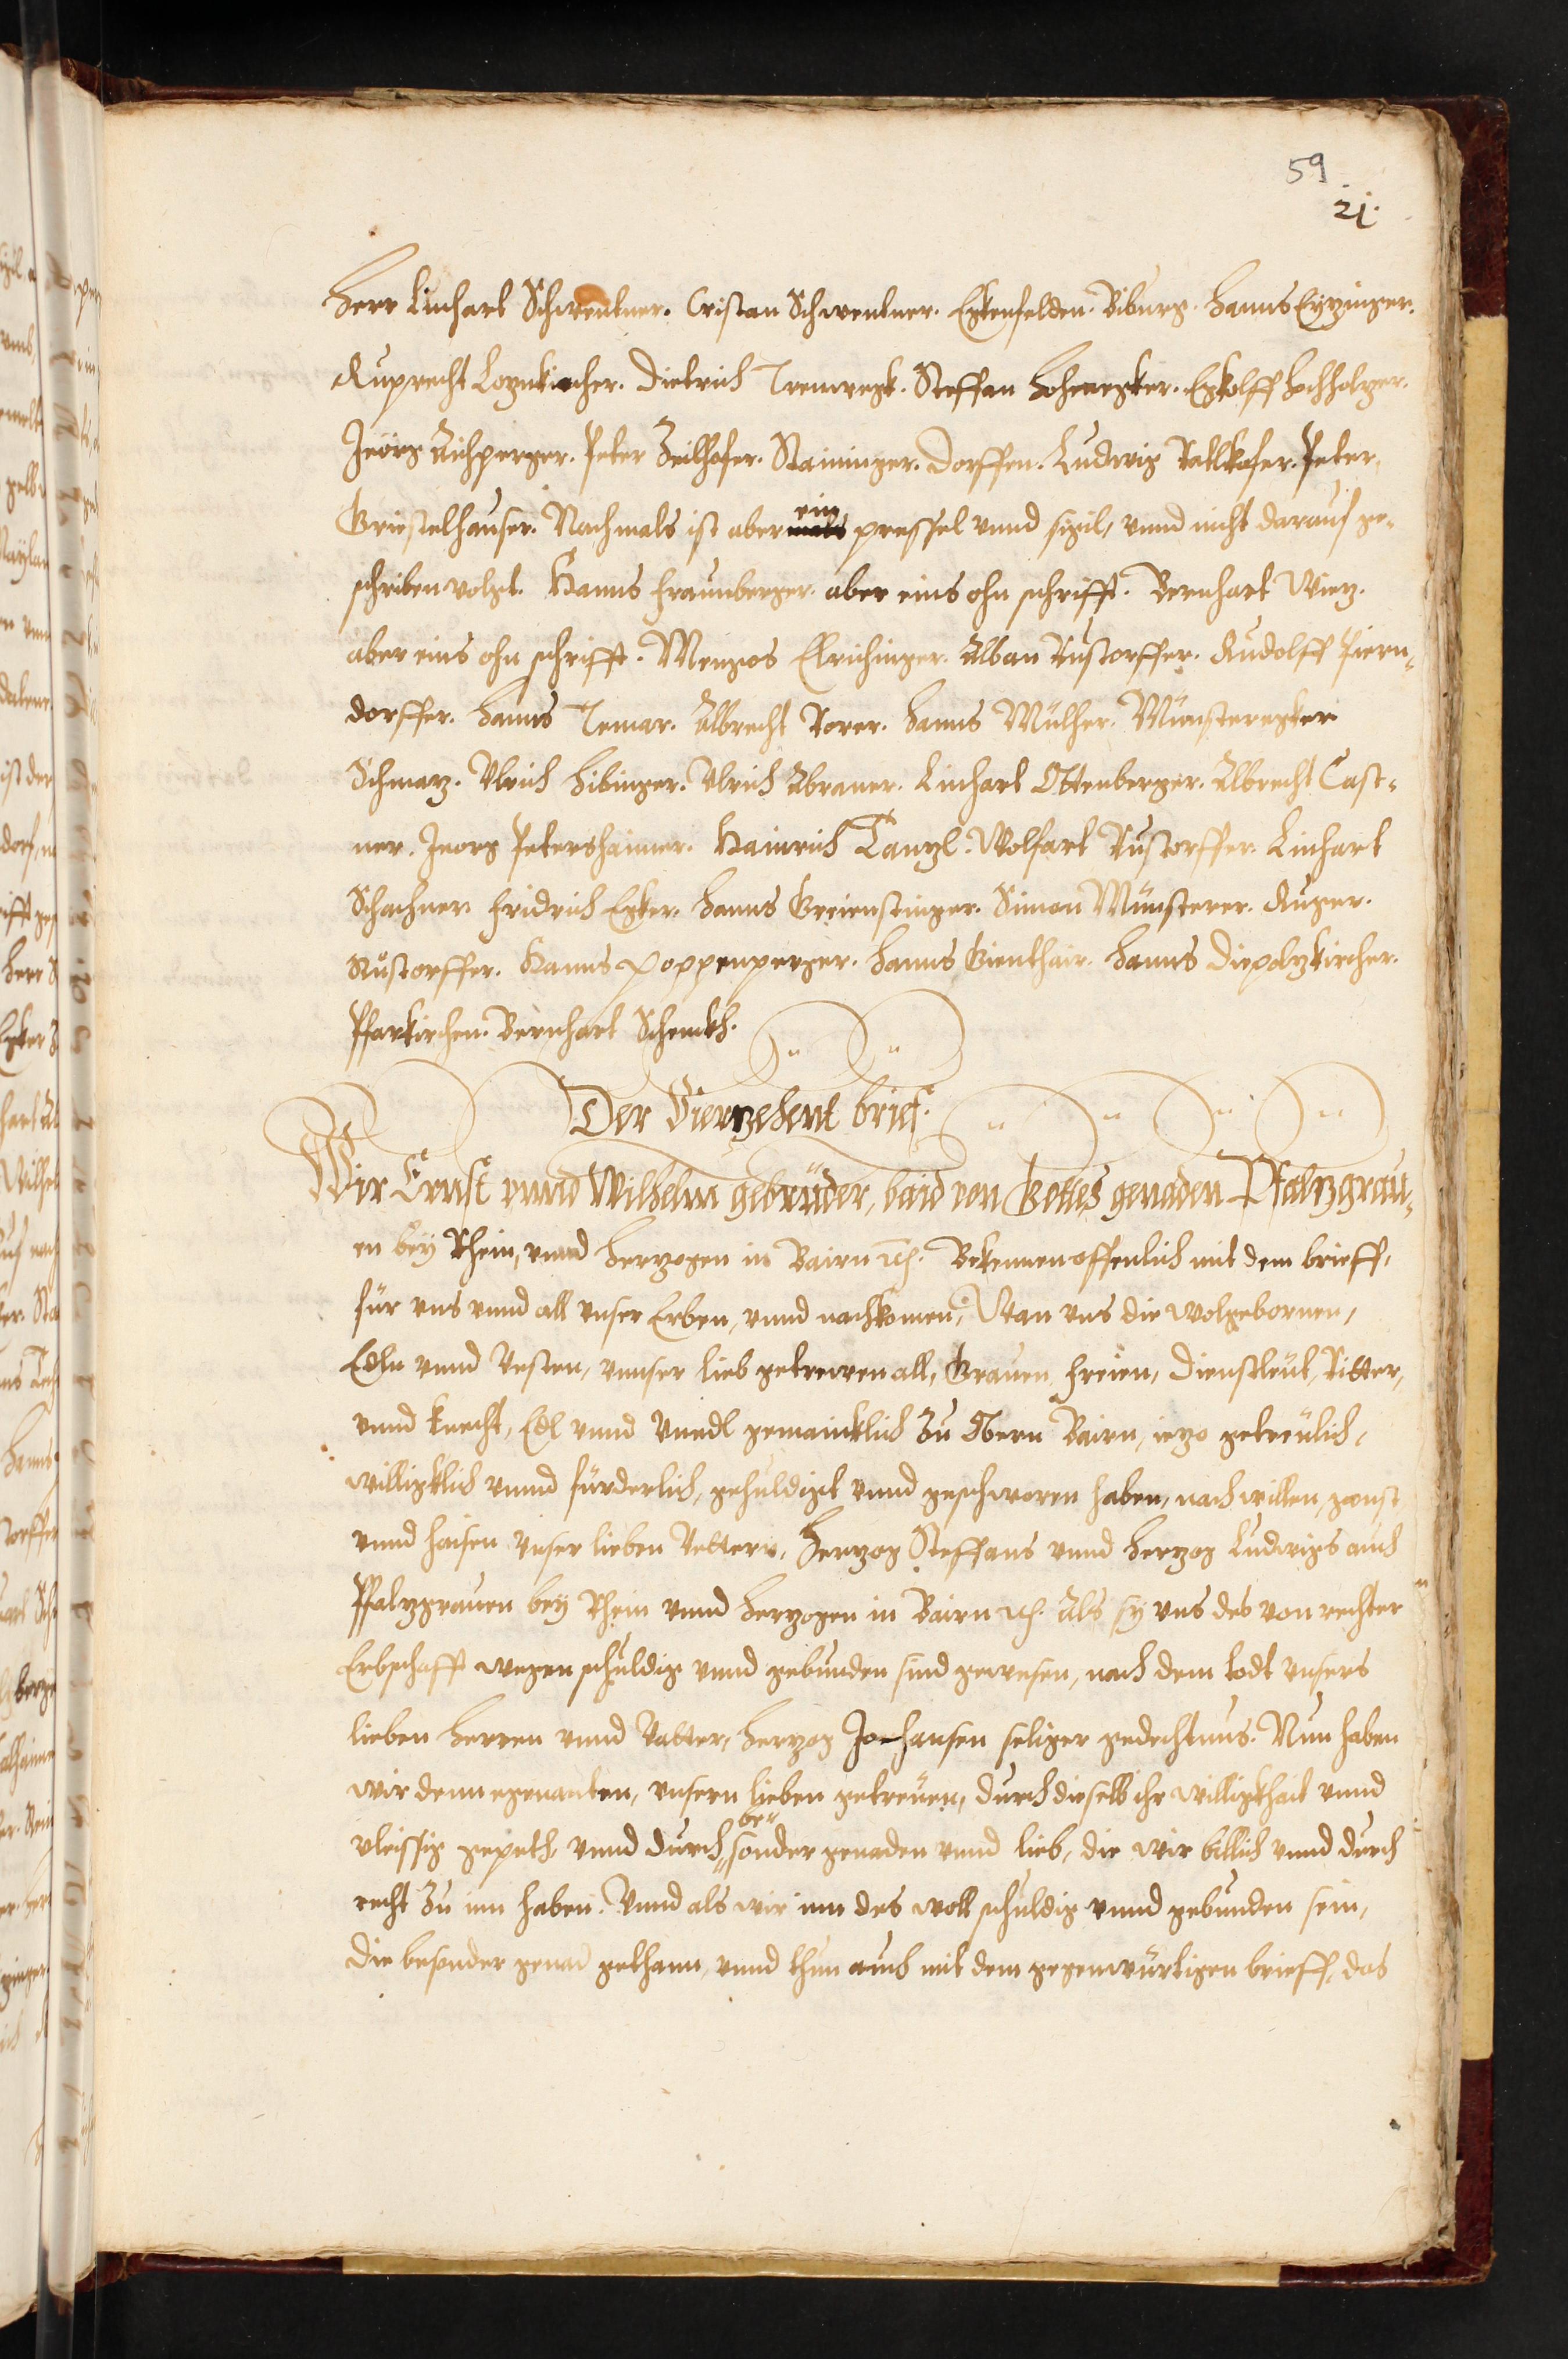 59
21.
Herr Linhart Schwentner. Cristan Schwentner. Egkenfelden. Biburg. Hanns Eytzinger.
Ruprecht Lotznkircher. Dietrich Trenwegk. Steffan Hohenegker. Egkolff Hochholtzer.
Jeörg Aichperger. Peter Zeilhofer. Staininger. Dorffen. Ludwig Katlkofer. Peter
Griestelhauser. Nachmals ist aber ein pressel vnnd sigil, vnnd nicht darauf ge-
schriben volgt. Hanns Fraunberger. aber eins ohn schrifft. Bernhart Wietz.
aber eins ohn schrifft. Mengos Elrichinger. Alban Rustorffer. Rudolff Piern-
dorffer. Hanns Temar. Albrecht Rorer. Hanns Mülher. Münsteregker
Schmatz. Vlrich Hibinger. Vlrich Abraner. Linhart Ottenberger. Albrecht Cast-
ner. Jeorg Petershaimer. Hainrich Tantzl. Wolfart Rustorffer. Linhart
Schachner. Fridrich Egker. Hanns Greienstinger. Simon Münsterer. Ruger.
Rustorffer. Hanns Poppenperger. Hanns Gienthair. Hanns Diepoltzkircher.
Pfarkirchen. Bernhart Schenckh.
Der Vierzehent brief.
Wir Ernst vnnd Wilhelm gebrüder, baid von Gottes genaden Pfaltzgrau-
en bey Rhein, vnnd Hertzogen in Bairn ꝛc. Bekennen offenlich mit dem brieff,
für vns vnnd all vnser Erben, vnnd nachkomen, Wan vns die wolgebornen,
Edln vnnd Vesten, vnnser lieb getrewen all, Grauen, Freien, Dienstleut, Ritter,
vnnd knecht, Edl vnnd Vnedl gemaincklich zu Obern Bairn, ietzo getreulich,
willigklich vnnd fürderlich, gehuldigt vnnd geschworen haben, nach willen, gonst
vnnd haisen vnser lieben Vettern, Hertzog Steffans vnnd Hertzog Ludwigs auch
Pfaltzgrauen bey Rhein vnnd Hertzogen in Bairn ꝛc. Als sy vns des von rechter
Erbschafft wegen schuldig vnnd gebunden sind gewesen, nach dem todt vnsers
lieben Herren vnnd Vatter, Hertzog Johansen seliger gedechtnus. Nun haben
wir denn egenanten, vnsern lieben getreuen, durch dieselb ihr willigkhait vnnd
vleissig gepeth, vnnd durch besonder genaden vnnd lieb, die wir billich vnnd durch
recht zu inn haben. Vnnd als wir inn des woll schuldig vnnd gebunden sein,
die besonder genad gethann, vnnd thun auch mit dem gegenwürtigen brieff, das